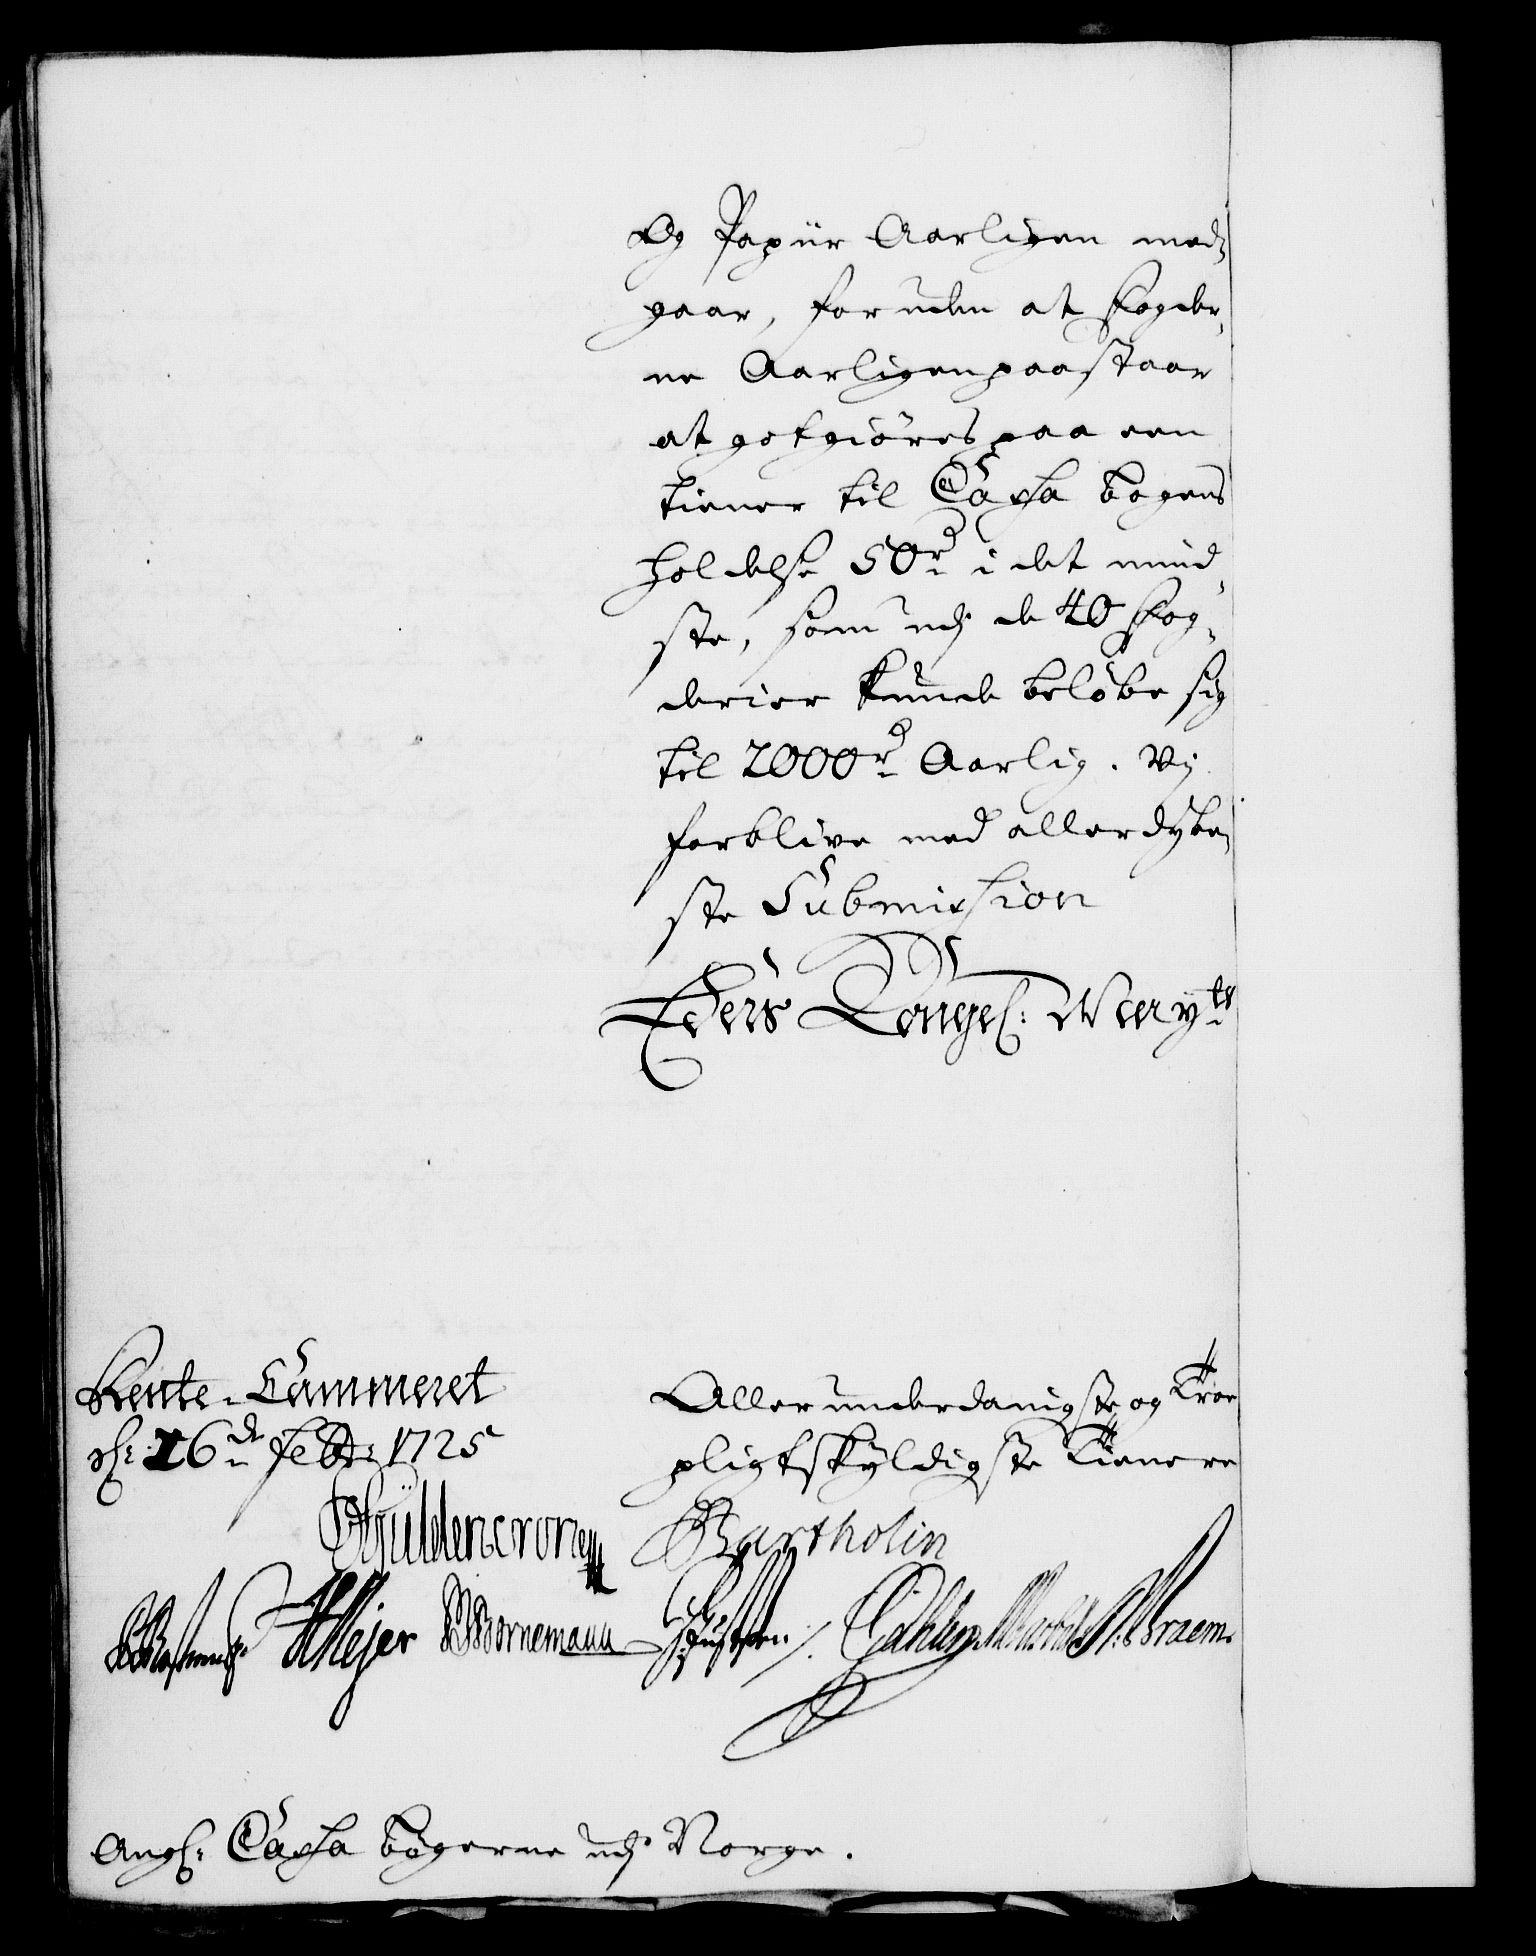 Og Papiir Aarligen med¬
gaar, foruden at Fogder¬
ne Aarligen paastaar
at gotgiøres paa een
tiener til Cassa bogens
holdelse 50 rd i det mind¬
ste, som udj de 40 Fog¬
derier kunde beløbe sig
til 2000 rd Aarlig. Vij
forblive med allerdybe¬
ste Submission
Eders Kongel: May.ts
Rente-Cammeret
d: 26de Febr: 1725
Allerunderdanigste og Troe
pligtskyldigste Tienere
Güldencrone Bartholin
HMejer Bornemann Braem.
Ang: Cassa bøgerne udj Norge.